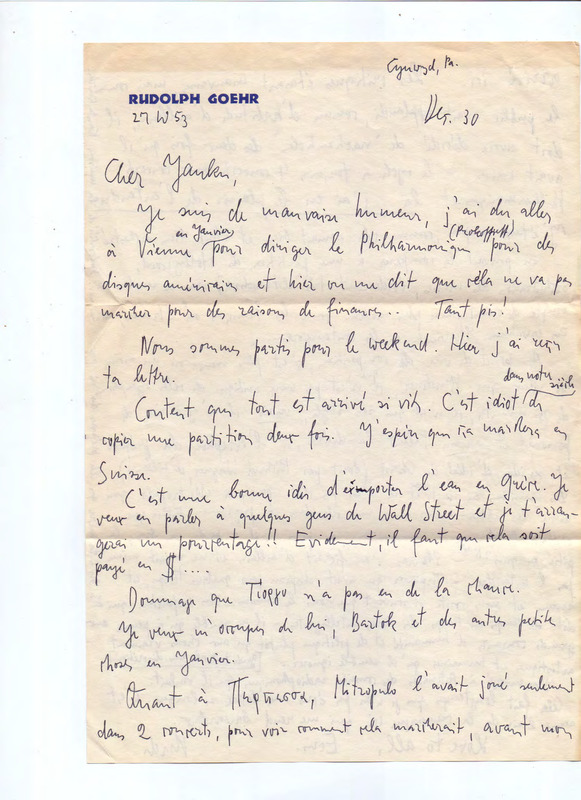 Cynwyd, Pa.
RUDOLPH GOEHR
27 W 53
Dec. 30
Cher Yanku,
Je suis de mauvaise humeur, j'ai du aller
en Janvier (Prokoffieff)
à Vienne pour diriger le Philharmonique pour des
disques américains et hier on me dit que cela ne va pas
marcher pour des raisons de finances.. Tant pis!
Nous sommes partis pour le weekend. Hier j'ai reçu
ta lettre.
dans notre siècle
Content que tout est arrivé si vite. C'est idiot de
copier une partition deux fois. J'espère que ça marchera en
Suisse.
C'est une bonne idée d'importer l'eau en Grèce. Je
veux en parler à quelques gens de Wall Street et je t'arran-
gerai un pourcentage!! Evidement, il faut que cela soit
payé en $....
Dommage que Γιοργο n'a pas eu de la chance.
Je veux m'occuper de lui, Bartok et des autres petite
choses en Janvier.
Quant à Πυρπασσα, Mitropulo l'avait joué seulement
dans 2 concerts, pour voir comment cela marcherait, avant mon